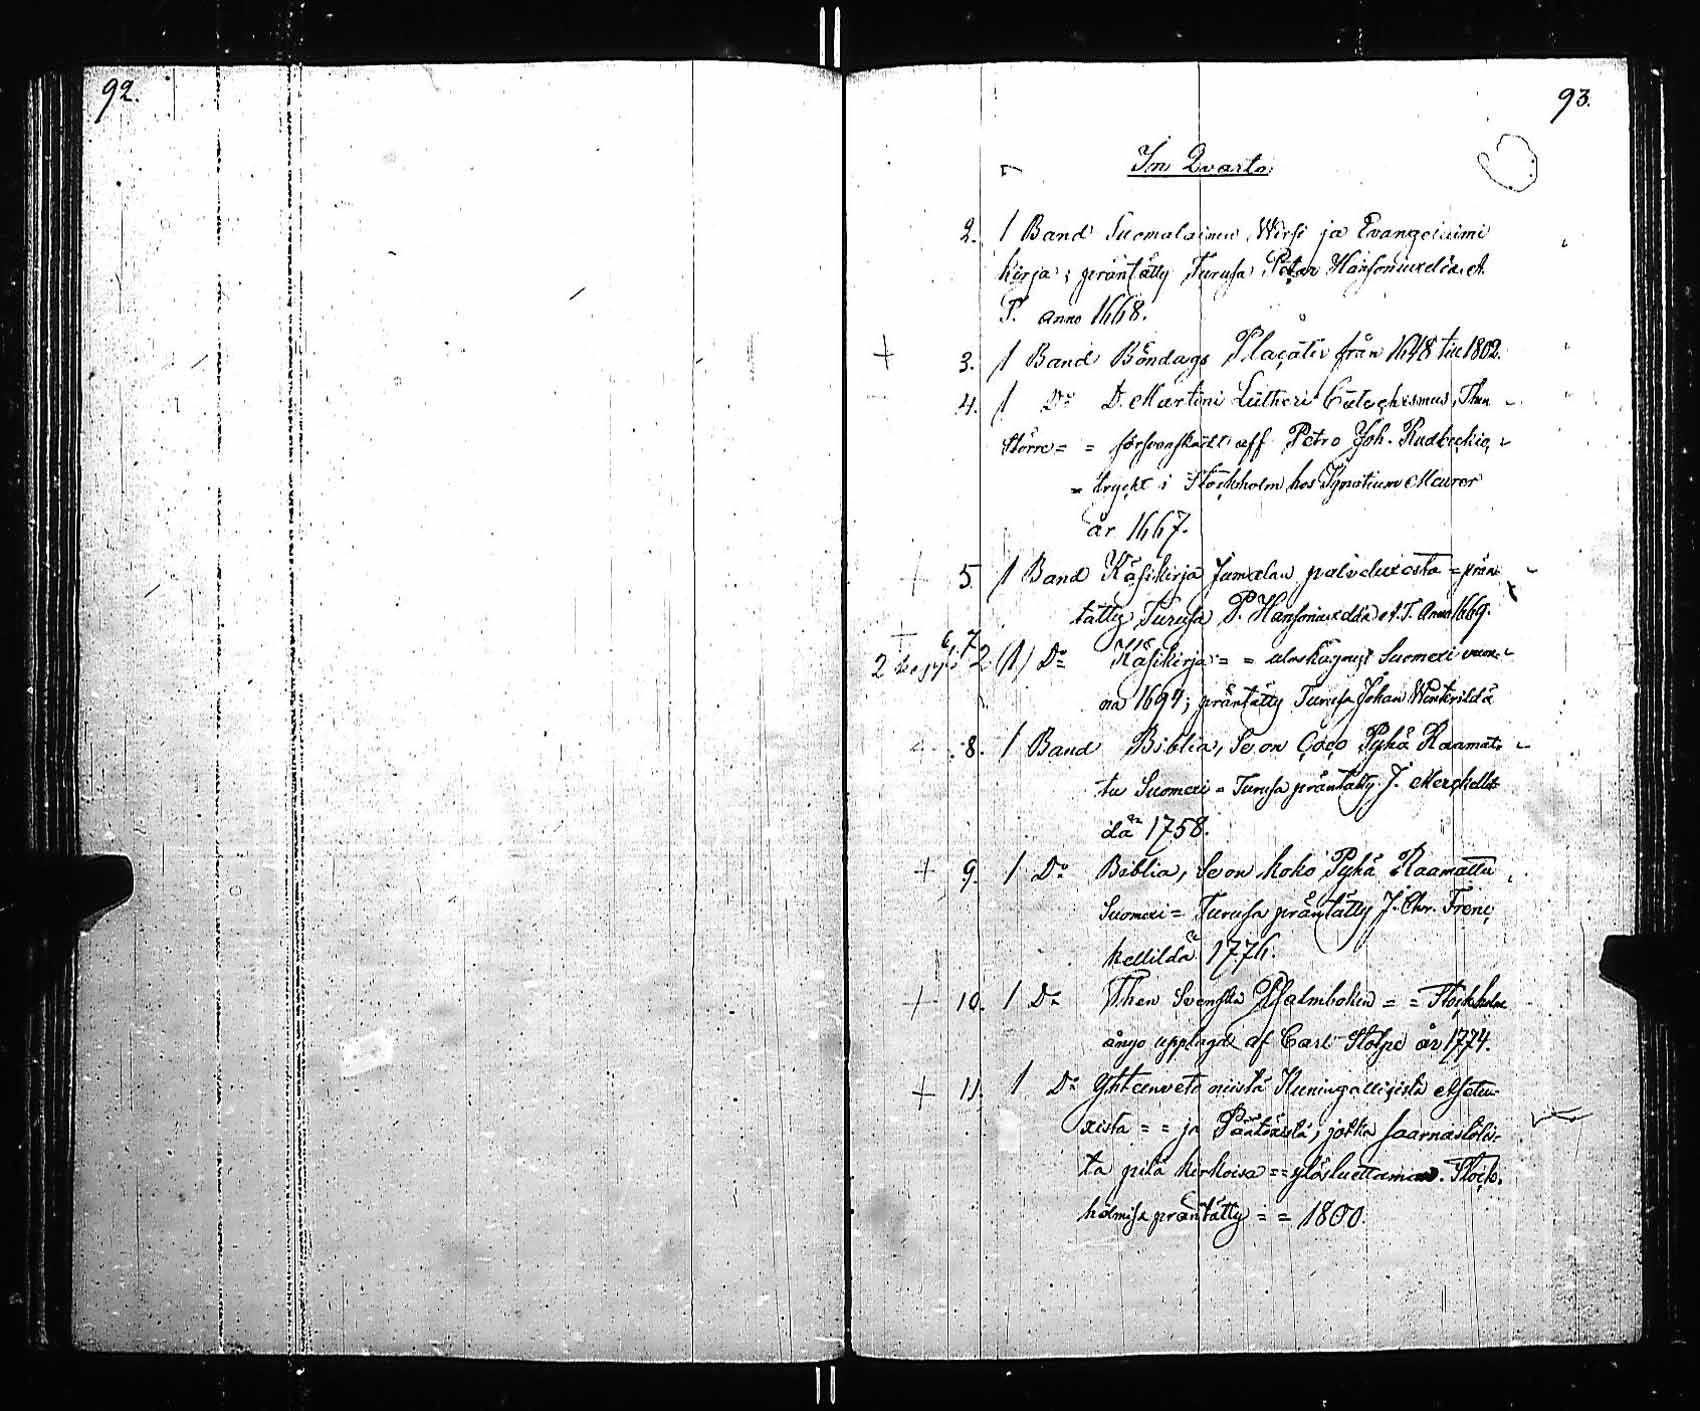 92.
93.
In Quarto.
2. 1 Band Suomalainen Wirsi ja Evangeliumi
kirja; präntätty Turusa Petar Hansoniuxelda A.
T. anno 1668.
+ 3. 1 Band Böndags Placater från 1648 till 1802.
4. 1 Do D. Martini Lutheri Catechismus, Then
Större = = förswenskatt aff Petro Joh. Rudbeckio,
= tryckt i Stockholm hos Ignatium Meurer
år 1667.
+ 5 1 Band Käsikirja Jumalan palveluxesta = prän
tätty Turusa P. Hansoniuxelda A. T. Anno 1669.
6. 7
2 2 (1) Do Käsikirja = = uloskäynyt Suomexi vuon-
na 1694; präntätty Turusa Johan Winterildä
8. 1 Band Biblia, Se on Coco Pyhä Raamat-
tu Suomexi = Turusa präntätty J. Merckellil-
dä 1758.
+ 9. 1 Do Biblia, Se on koko Pyhä Raamattu
Suomexi = Turusa präntätty J. Chr. Frenc
kellildä 1776.
+ 10. 1 Do Then Svenska Psalmboken = = Stockholm
ånyo upplagd af Carl Stolpe år 1774.
+ 11. 1 Do Yhteenveto niistä Kuningallisista Asetu-
xista = = ja Päätöxistä, jotka saarnastolis-
ta pitä kirkoisa == ylösluettaman. Stock-
holmisa präntätty = = 1800.